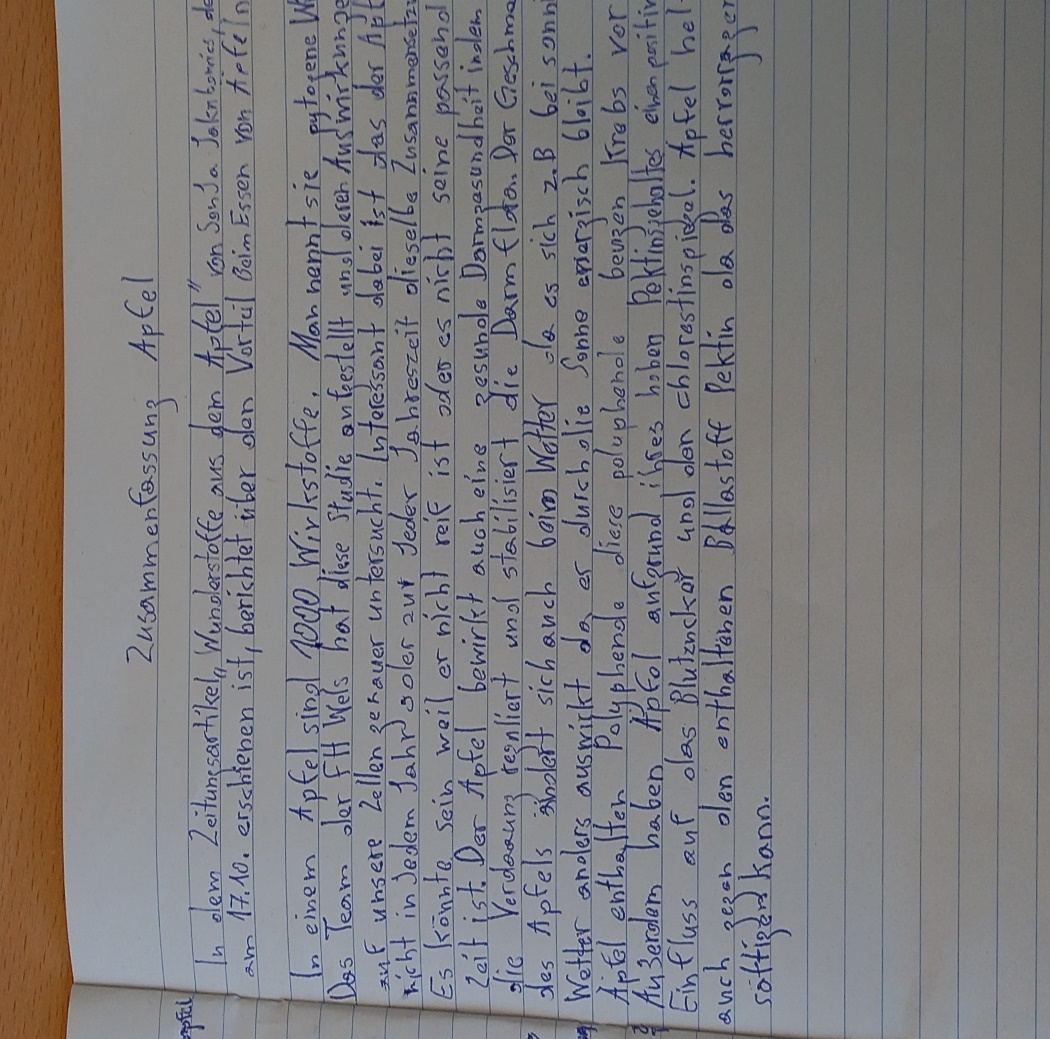 Zusammenfassung Apfel
In dem Zeitungsartikel „Wunderstoffe aus dem Apfel" von Sonja
am 17.10. erschienen ist, berichtet über den Vorteil beim Essen von Äpfeln
In einem Apfel sind 1000 Wirkstoffe. Man nennt sie pytogene
Das Team der FH Wels hat diese Studie aufgestellt und deren Auswirkunge
auf unsere Zellen genauer untersucht. Interessant dabei ist das der Apf
nicht in Jedem Jahr oder zur Jeder Jahreszeit dieselbe Zusammensetzu
Es könnte sein weil er nicht reif ist oder es nicht seine passend
Zeit ist. Der Apfel bewirkt auch eine gesunde Darmgesundheit indem
die Verdauung reguliert und stabilisiert die Darmflora. Der Geschma
des Apfels ändert sich auch beim Wetter da es sich z.B bei sonni
Wetter anders auswirkt da er durch die Sonne energisch bleibt.
Äpfel enthalten Polyphende diese poluphenole beugen Krebs vor
Außerdem haben Äpfel aufgrund ihres hohen Pektingehaltes einen positiv
Einfluss auf das Blutzucker und den chlorestinspigel. Äpfel hel
auch gegen den enthaltenen Ballastoff Pektin da das herrorragen
sättigen kann.